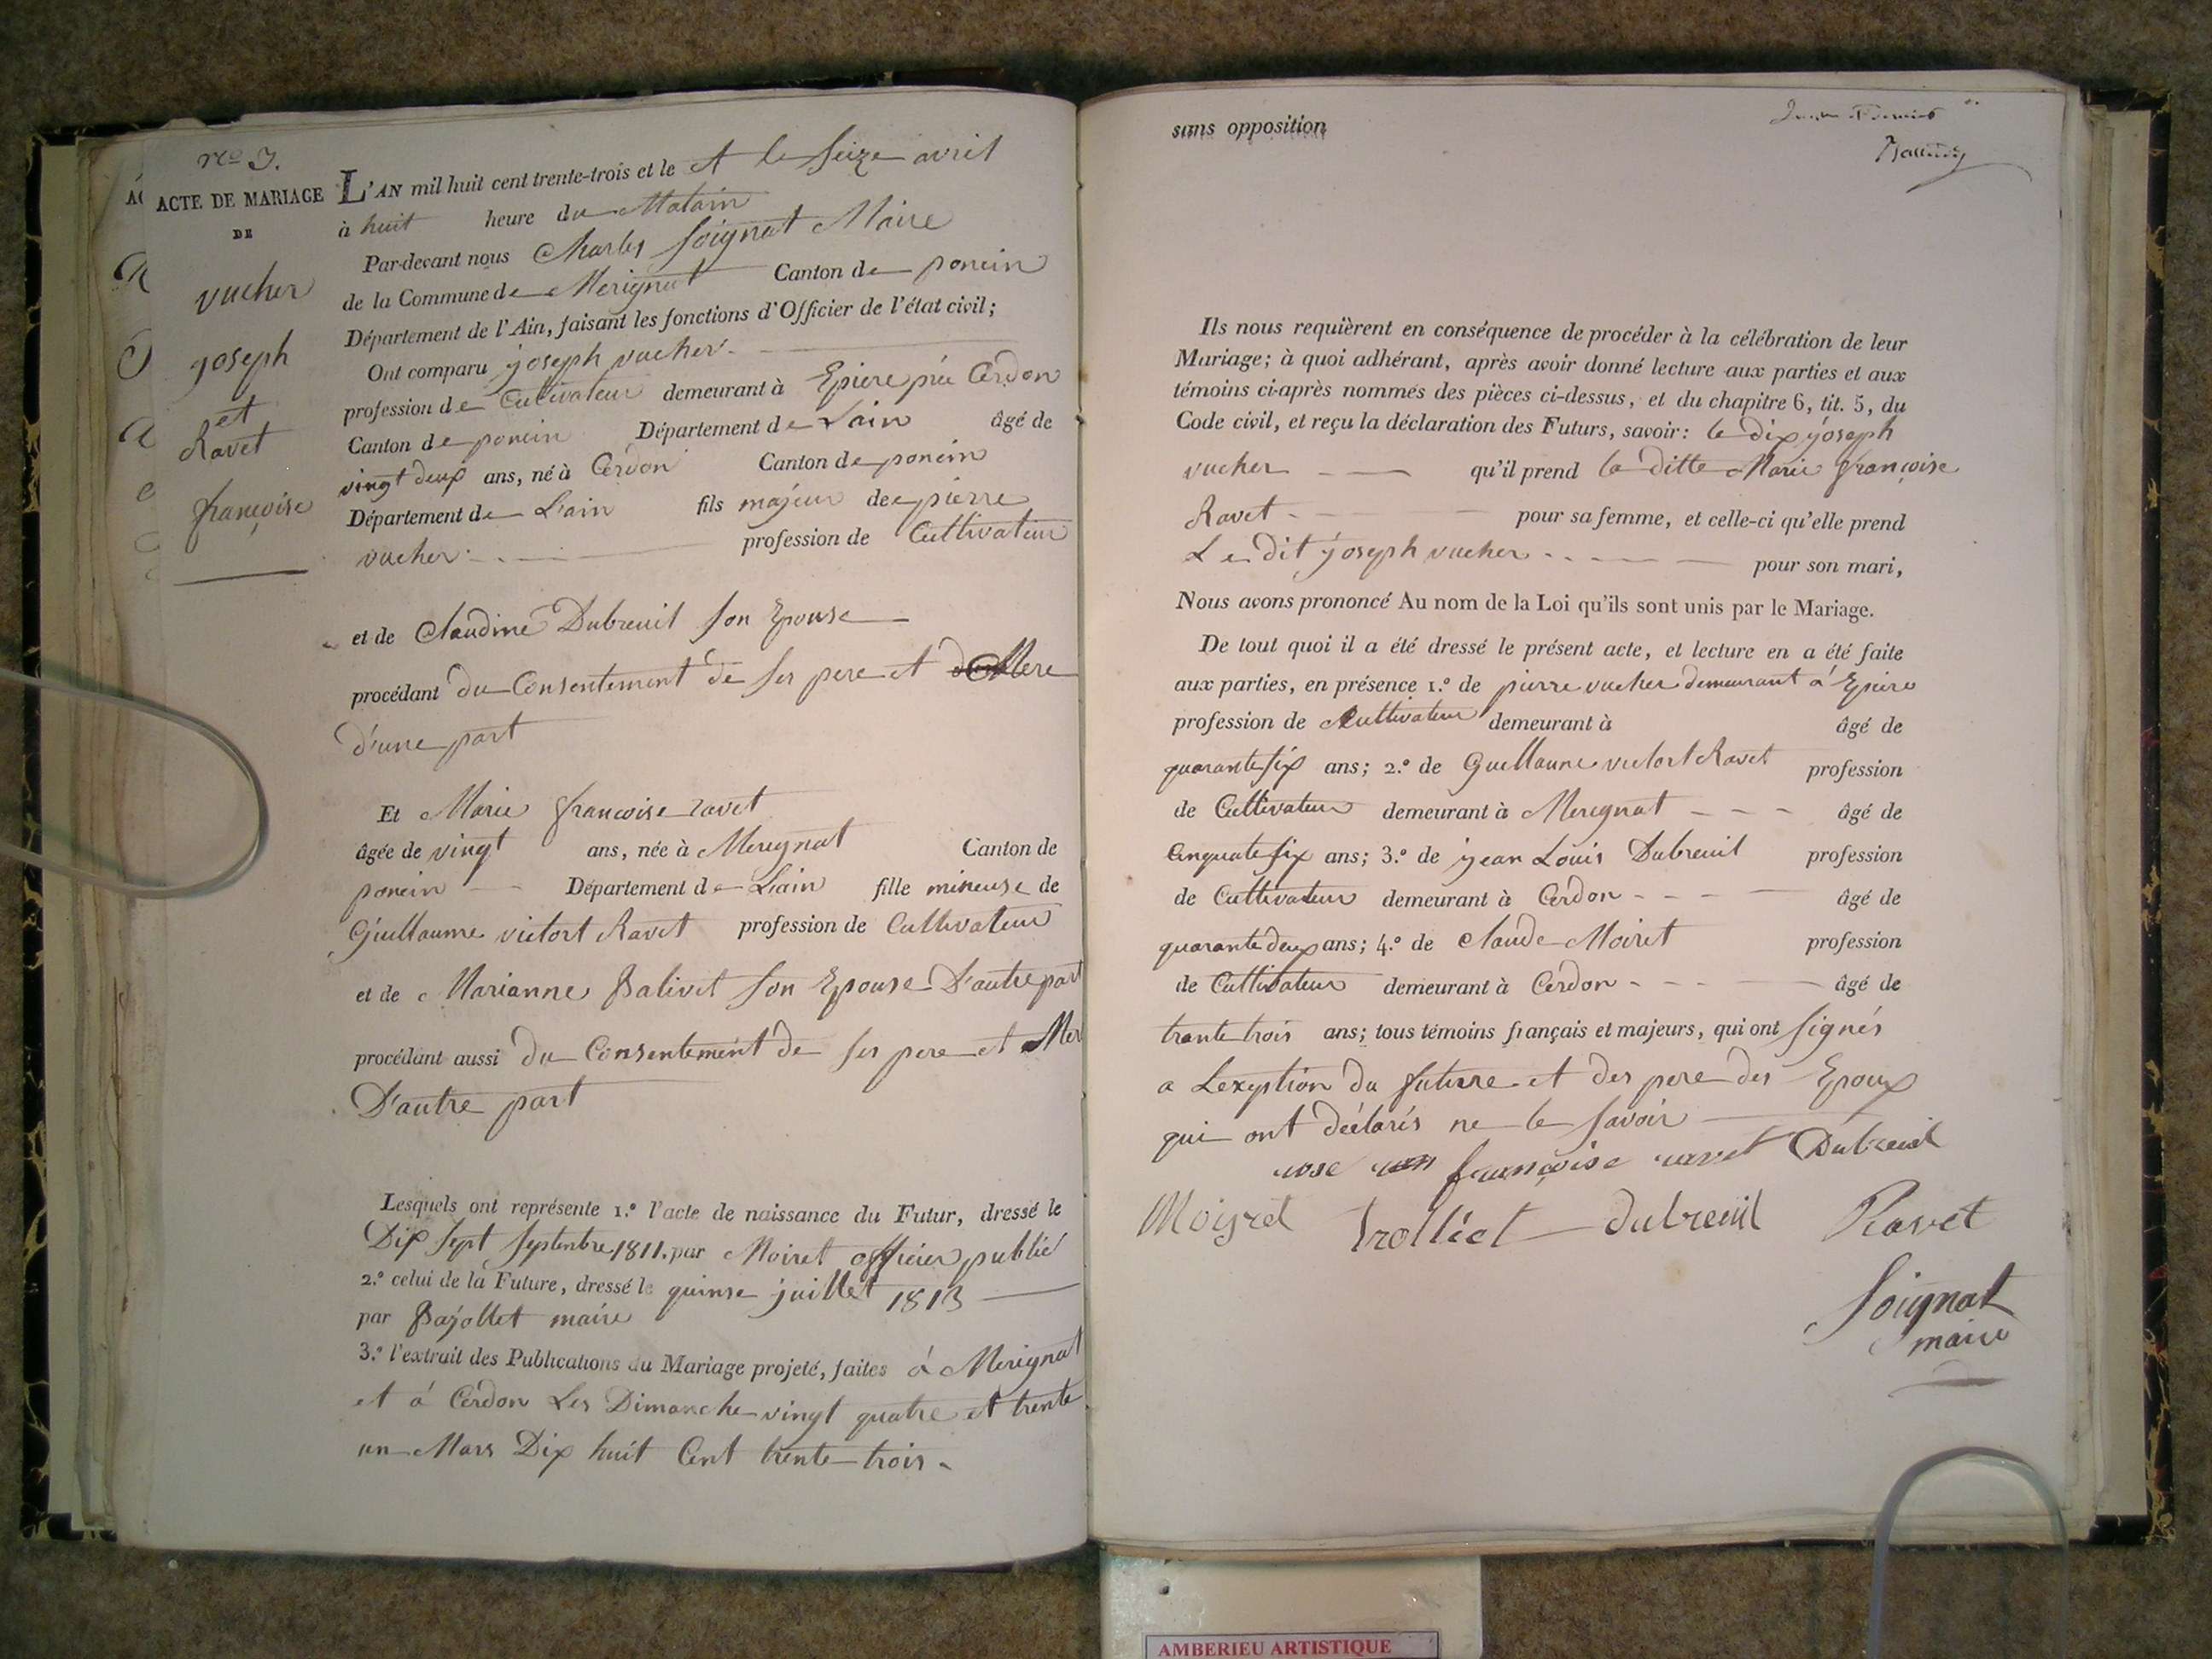 ACTE DE MARIAGE
DE
vucher
joseph
et
Ravet
françoise
L'AN mil huit cent trente-trois et le et le seize avril
à huit heure du Matain
Par-devant nous Charles Soignat Maire
de la Commune de Merignat Canton de poncin
Département de l'Ain, faisant les fonctions d'Officier de l'état civil;
Ont comparu joseph vucher
profession de Cultivateur demeurant à Epiere prés Cerdon
Canton de poncin Département de Lain âgé de
vingt deux ans, né à Cerdon Canton de poncin
Département de L'ain fils majeur de pierre
vucher profession de Cultivateur
et de Claudine Dubreuil son Epouse
procédant du Consentement de ses pere et Mere
d'une part
Et Marie francoise ravet
âgée de vingt ans, née à Meregnat Canton de
poncin Département de Lain fille mineuse de
Guillaume victort Ravet profession de Cultivateur
et de Marianne Balivet son Epouse D'autre part
procédant aussi du Consentement de ses pere et Mer
D'autre part
Lesquels ont représente 1.° l'acte de naissance du Futur, dressé le
Dix sept septembre 1811. par Moiret officier public
2.° celui de la Future, dressé le quinse juillet 1813
par Bajollet maire
3.° l'extrait des Publications du Mariage projeté, faites à Merignat
et á Cerdon Les Dimanche vingt quatre et trente
un Mars Dix huit Cent trente trois
sans opposition
Ils nous requièrent en conséquence de procéder à la célébration de leur
Mariage; à quoi adhérant, après avoir donné lecture aux parties et aux
témoins ci-après nommés des pièces ci-dessus, et du chapitre 6, tit. 5, du
Code civil, et reçu la déclaration des Futurs, savoir: le dix joseph
vucher qu'il prend la ditte Marie françoise
Ravet pour sa femme, et celle-ci qu'elle prend
Le dit joseph vucher pour son mari,
Nous avons prononcé Au nom de la Loi qu'ils sont unis par le Mariage.
De tout quoi il a été dressé le présent acte, et lecture en a été faite
aux parties, en présence 1.° de pierre vucher demeurant á Epiere
profession de Cultivateur demeurant à âgé de
quarante six ans; 2.° de Guellaune victort Ravet profession
de Cultivateur demeurant à Meregnat âgé de
Cinquate six ans; 3.° de jean Louis Dubreuil profession
de Cultivateur demeurant à Cerdon âgé de
quarante deux ans; 4.° de Claude Moiret profession
de Cultivateur demeurant à Cerdon âgé de
trante trois ans; tous témoins français et majeurs, qui ont signés
a Lexeption du futurre et des pere des Epoux
qui ont déclarés ne le savoir
françoise ravet Dubreuil
Moyret trolliet dubreuil Ravet
Soignat
maire
AMBERIEU ARTISTIQUE